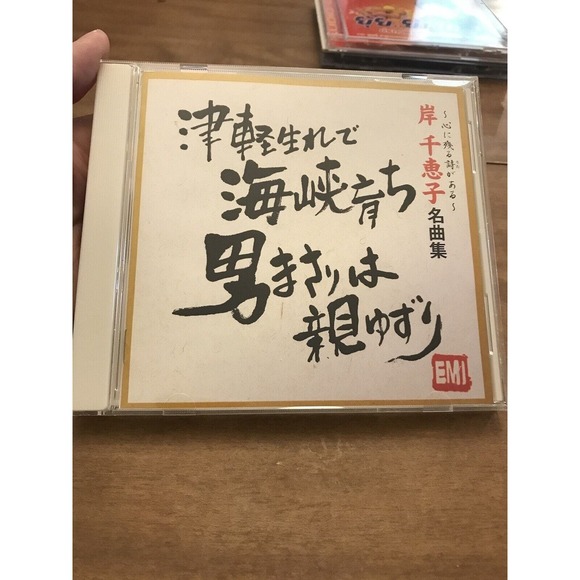 ～心に残る詩がある～
うた
岸 千恵子 名曲集
津軽生れで
海峡育ち
男まさりは
親ゆずり
EMI